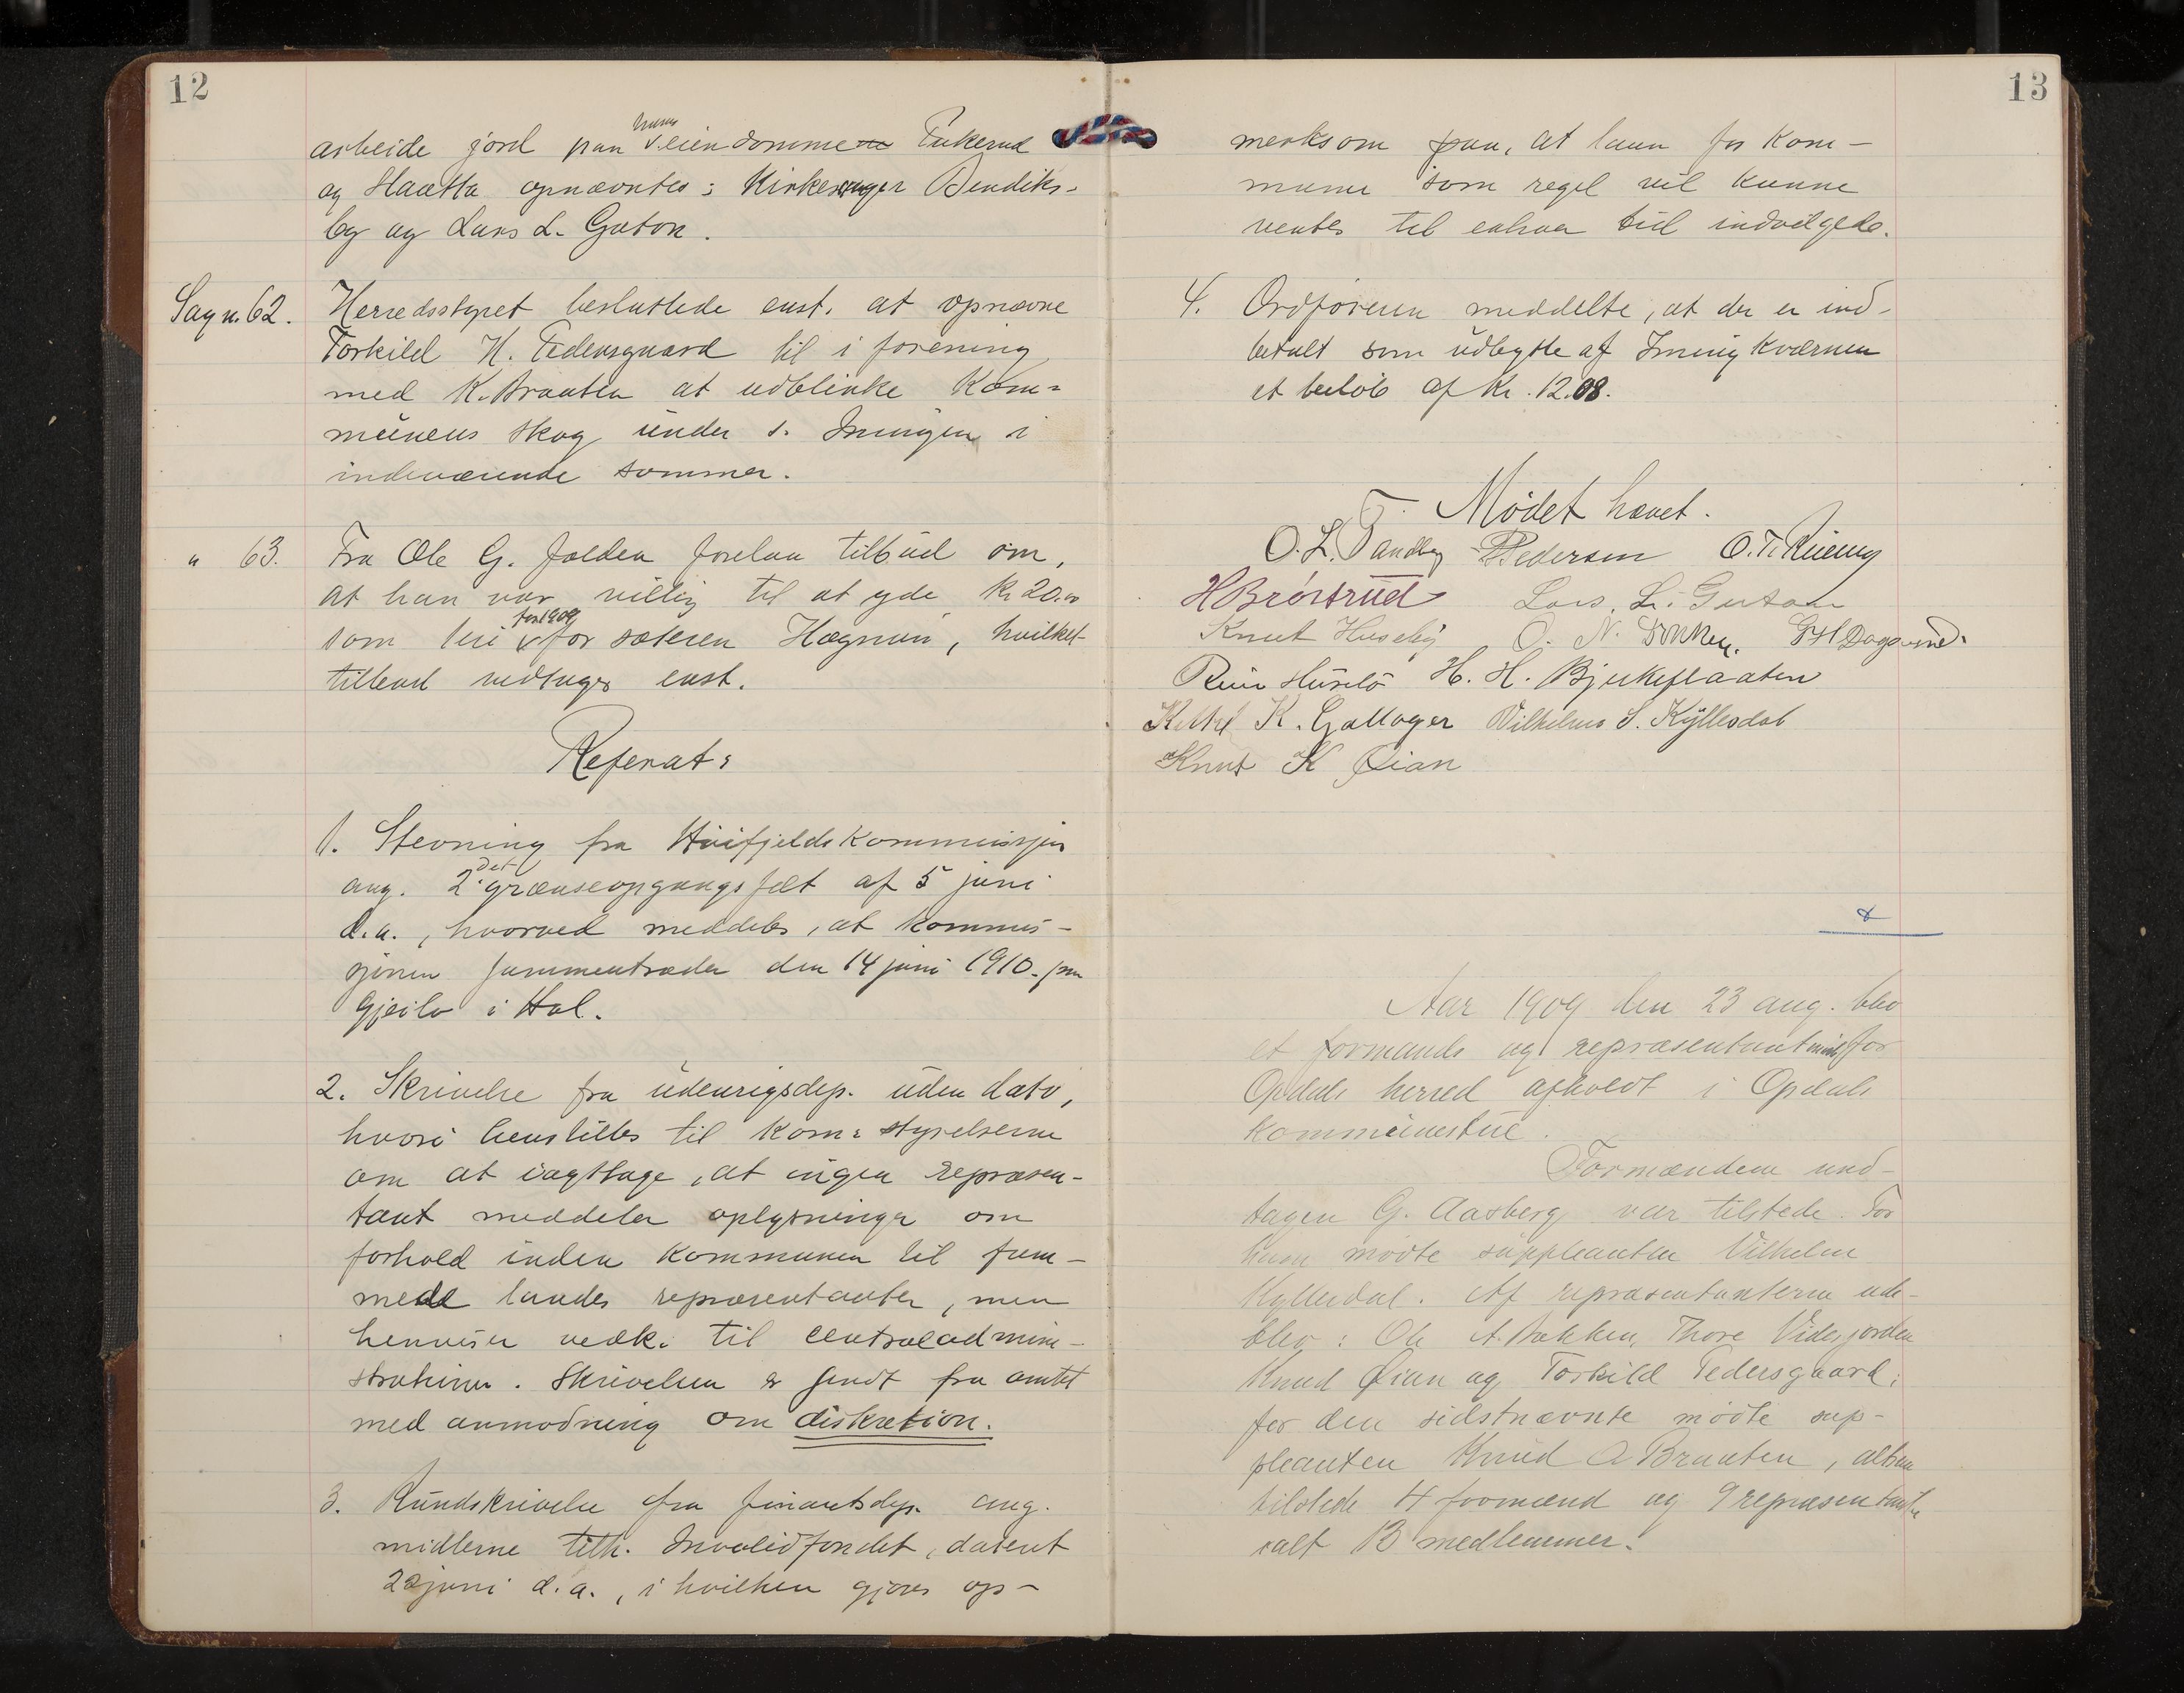 12
arbeide jord paa hans eiendomme Tukerud
og Haatta opnævntes: Kirkesanger Bendiks-
by og Lars L. Guton.
Sag n. 62. Herredsstyret besluttede enst. at opnævne
Torkild H. Tedensgaard til i forening
med K. Braaten at udblinke kom=
munens skog under s. Iningen i
indeværende sommer.
" 63. Fra Ole G. Jolden forelaa tilbud om,
at han var villig til at yde kr 20.00
som leie for 1909 for sæteren Hægnun, hvilket
tilbud vedtages enst.
Referat:
1. Stevning fra Høifjeldskommissjen
ang. 2det grænseopgangsfelt af 5 juni
d.a., hvorved meddeles, at kommis-
sjonen sammentræder den 14 juni 1910 paa
Gjeilo i Hol.
2. Skrivelse fra udenrigsdep. uden dato,
hvori henstilles til kom: styrelserne
om at iagttage, at ingen repræsen-
tant meddeler oplysninger om
forhold inden kommunen til frem-
mede landes repræsentanter, men
henviser vedk. til centraladmini-
strationen. Skrivelsen er sendt fra amtet
med anmodning om diskretion.
3. Rundskrivelse fra finantsdep. ang.
midlerne tilh. Invalidfondet, dateret
22 juni d.a., i hvilken gjøres op-
13
merksom paa, at laan for kom-
muner som regel vil kunne
ventes til enhver tid indvilgede.
4. Ordføreren meddelte, at der er ind-
betalt som udbytte af Imingkværnen
et beløb af kr. 12.08.
Mødet hævet.
O. L. Tandberg T. Pedersen O. T. Rueng
H Brøstrud Lars. L. Guton
Knut Huseby O. N. G H Dagsrud.
H. H. Bjerkeflaaten
K. Gallager Vilhelm S. Kyllesdal
Knut K Øian
Aar 1909 den 23 aug. blev
et formands og repræsentantmøde for
Opdals herred afholdt i Opdals
kommunestue.
Formændene und-
tagen G. Aasberg var tilstede. For
ham mødte suppleanten Vilhelm
Kyllesdal. Af repræsentanterne ude-
blev: Ole A. Bakken, Thore Vidsjorden
Knud Øian og Torkild Tedensgaard;
for den sidstnævnte mødte sup-
pleanten Knud O Braaten, altsaa
tilstede 4 formænd og 9 repræsentanter
ialt 13 medlemmer.